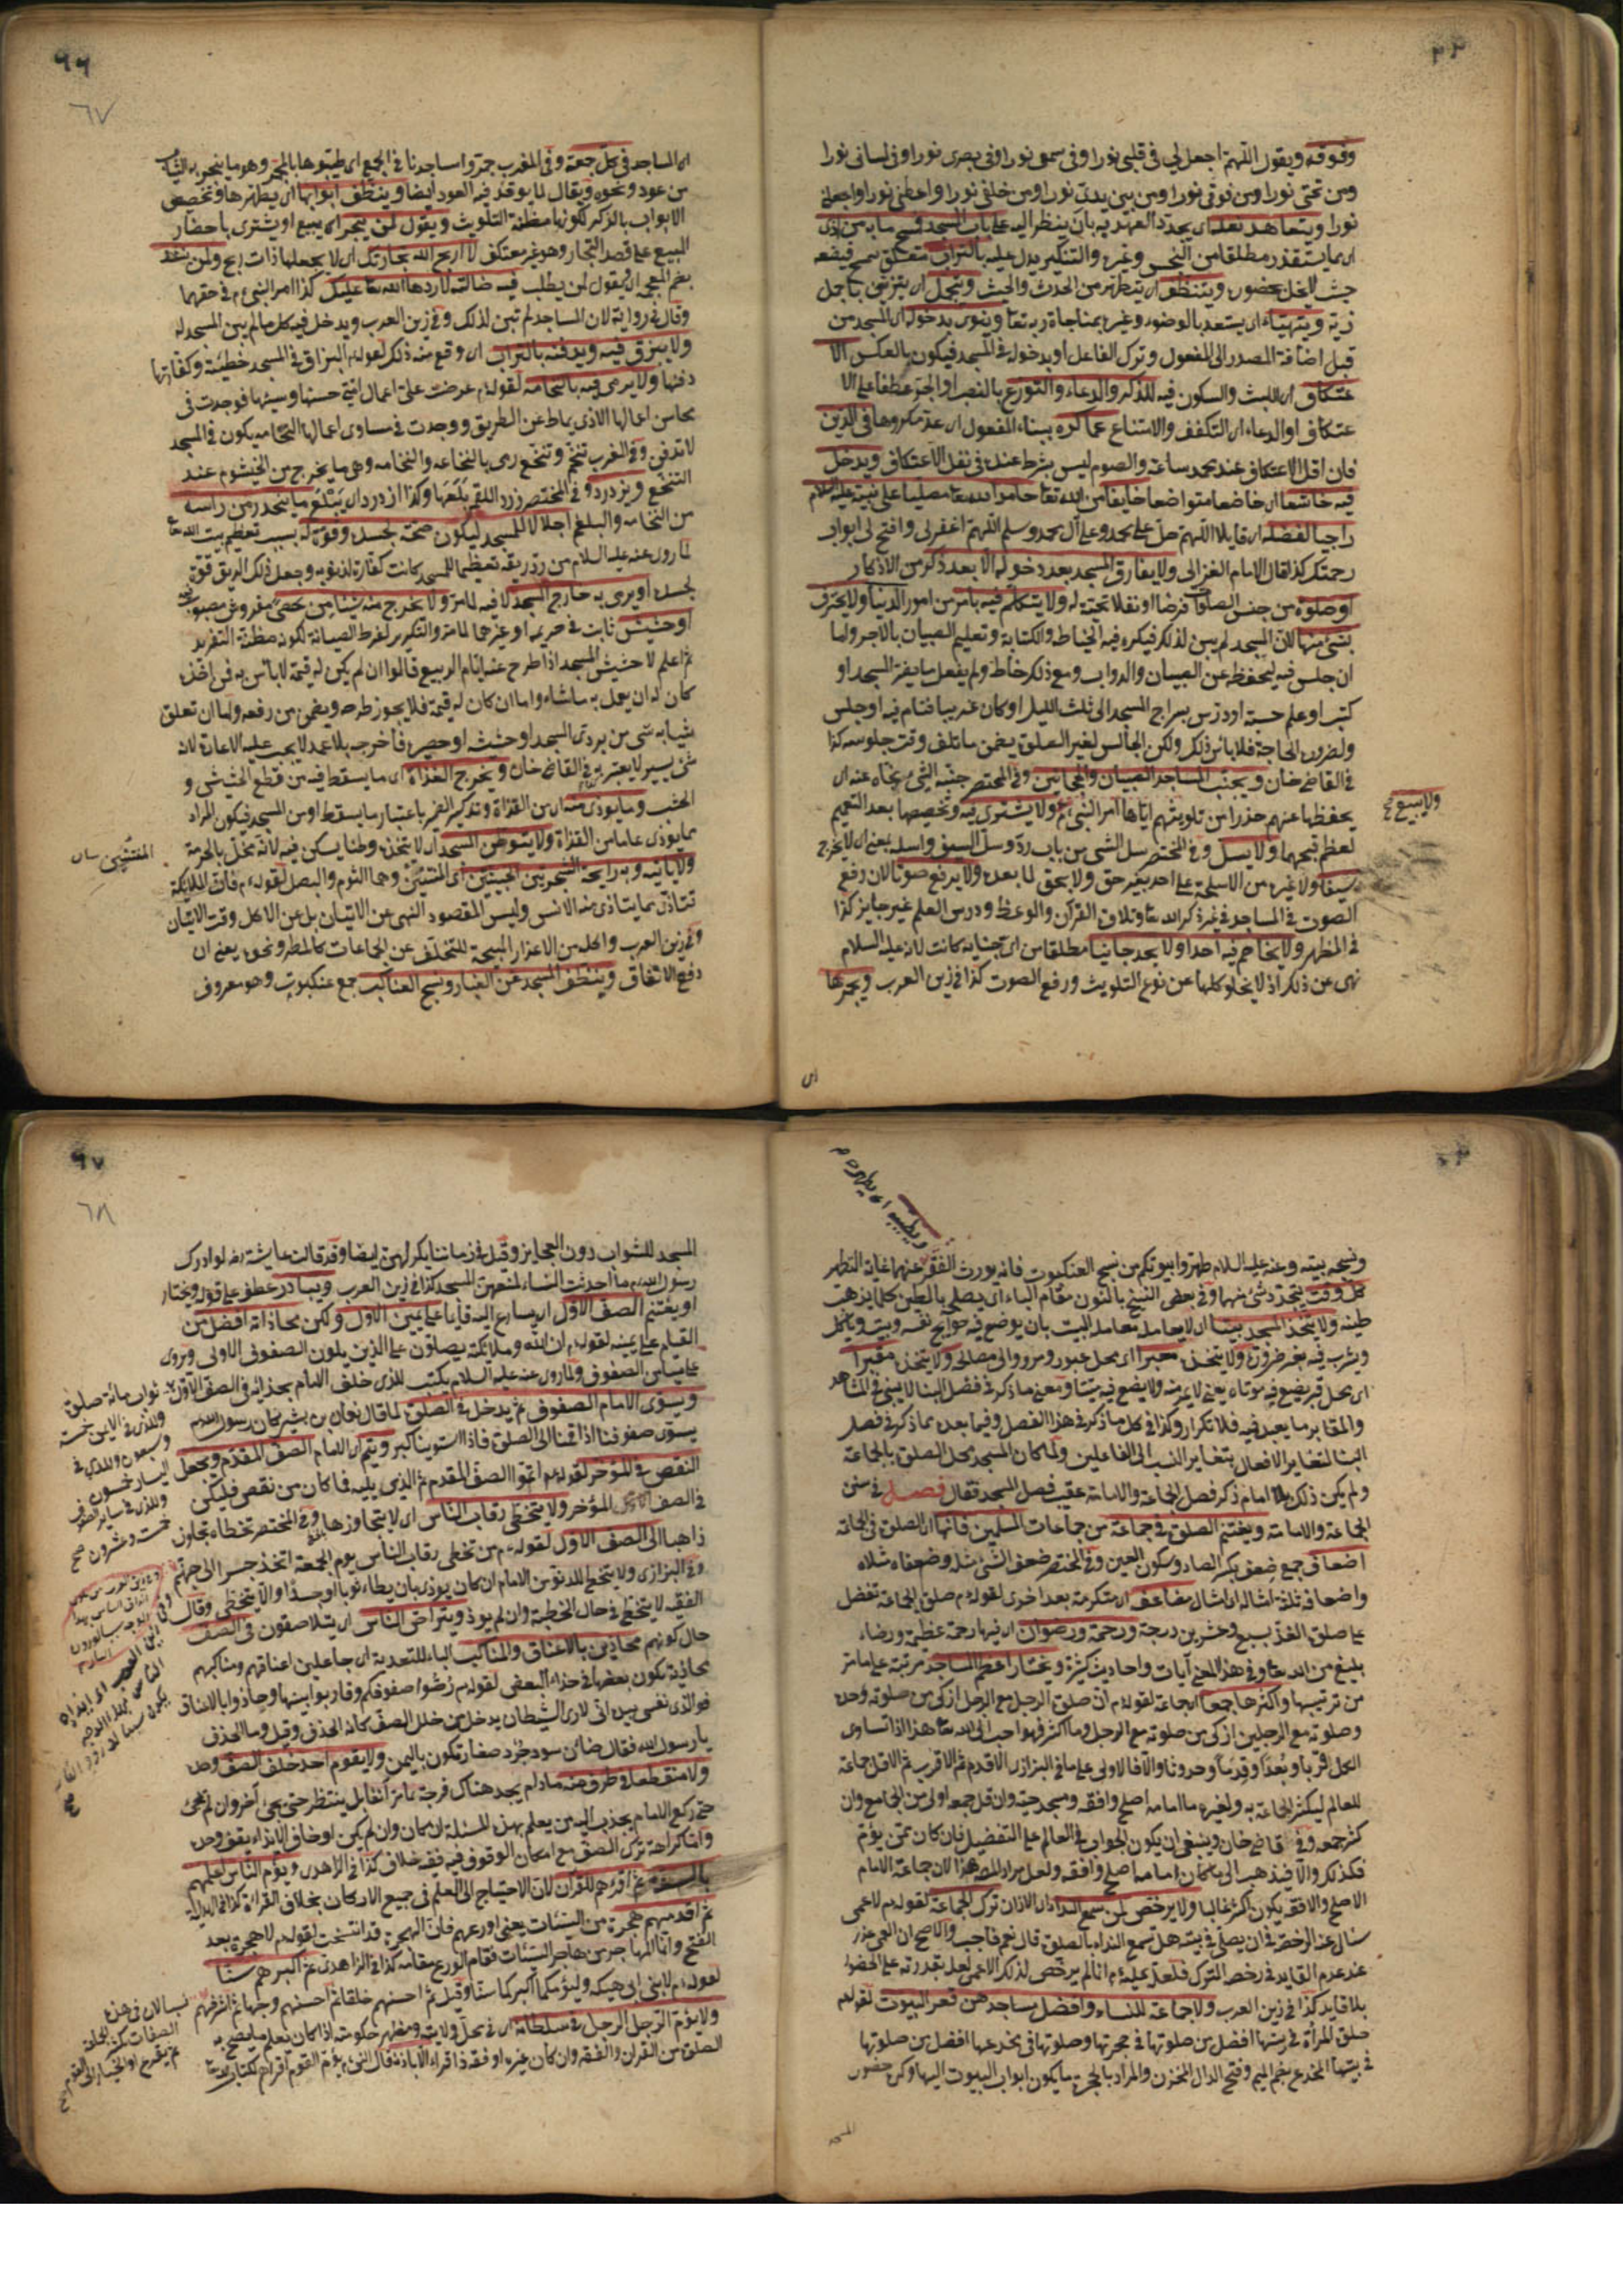 وفوقه ويقول اللهم اجعل لي في قلبي نورا وفي سمعي نورا وفي بصري نورا وفي لساني نورا
ومن تحتي نورا ومن فوقي نورا ومن بين يدي نورا ومن خلفي نورا واعطني نورا واجعلني
نورا ويتعاهد نعله اي يجدد العهد به بان ينظر اليه على باب المسجد فيمسح ما به من اذى
اي مما يستقذر مطلقا من النجس وغيره والتنكير يدل عليه بالتراب متعلق بيمسح فيقعد
حيث لا يخل بحضوره ويتنظف اي يتطهر من الحدث والخبث ويتجمل اي يتزين باجمل
زيه ويتهيأ اي يستعد بالوضوء وغيره بمناجاة ربه تعا وينوي بدخوله اي المسجد من
قبيل اضافة المصدر الى المفعول وترك الفاعل اويدخوله في المسجد فيكون بالعكس الا
عتكاف اي اللبث والسكون فيه للذكر والدعاء والتورع بالنصب او الجر عطفا على الا
عتكاف او الدعاء اي التكفف والامتناع عما كره ببناء المفعول اي عد مكروها في الدين
فان اقل الاعتكاف عند محمد ساعة والصوم ليس بشرط عنده في نفل الاعتكاف ويدخل
فيه خاشعا اي خاضعا متواضعا خايفا من الله تعا حامدا لله تعا مصليا على نبيه عليه السلام
راجيا لفضله اي قايلا اللهم صل على محمد وعلى آل محمد وسلم اللهم اغفر لي وافتح لي ابواب
رحمتك كذا قال الامام الغزالي ولا يفارق المسجد بعد دخوله الا بعد ذكر من الاذكار
او صلوة من جنس الصلوات فرضا او نفلا تحية له ولا يتكلم فيه بامر من امور الدنيا ولا يحترف
بشئ منها لان المسجد لم يبن لذلك فيكره فيه الخياطة والكتابة وتعليم الصبيان بالاجر واما
ان جلس فيه ليحفظه عن الصبيان والدواب ومع ذلك خاط ولم يفعل ما يضر المسجد او
كتب او علم حسبة او درس بسراج المسجد الى ثلث الليل او كان غريبا فنام فيه او جلس
ولضرورة الحاجة فلا بأس بذلك ولكن الجالس لغير الصلوة يضمن ما تلف وقت جلوسه كذا
في القاضي خان ويجنب المساجد الصبيان والمجانين وفي المختصر جنبه الشئ نحاه عنه اي
يحفظها عنهم حذرا من تلويثهم اياها امر النبي ولا يشتري فيه وتخصيصها بعد التعميم
لعظم قبحهما ولا يسل وفي المختصر سل الشئ من باب رد وسل السيف واسله بمعنى اي لا يخرج
سيفا ولا غيره من الاسلحة على احد بغير حق ولا بحق لما بعده ولا يرفع صوتا لان رفع
الصوت في المساجد في غير ذكر الله تعا وتلاوة القرآن والوعظ ودرس العلم غير جايز كذا
في المظهر ولا يخاصم فيه احدا ولا يحد جانيا مطلقا من اي جناية كانت لانه عليه السلام
نهى عن ذلك اذ لا يخلو كلها عن نوع التلويث ورفع الصوت كذا في زين العرب ويجمرها
ولا يبيع
اي
٦٦
٦٧
اي المساجد في كل جمعة وفي المغرب جمروا مساجدنا في الجمع اي طيبوها بالمجمر وهو ما يتبخر به الثياب
من عود ونحوه ويقال لما يوقد فيه العود ايضا وينظف ابوابها اي يطهرها وتخصيص
الابواب بالذكر لكونها مظنة التلويث ويقول لمن يتجر اي يبيع او يشتري باحضار
المبيع على قصد التجار وهو غير معتكف لا اربح الله تجارتك اي لا يجعلها ذات ربح ولمن ينشد
بضم المعجمة اي ويقول لمن يطلب فيه ضالته لا ردها الله تعا عليك كذا امر النبي م في حقهما
وقال في رواية لان المساجد لم تبن لذلك وفي زين العرب ويدخل فيه كل ما لم يبن المسجد له
ولا يبزق فيه ويدفنه بالتراب اي وقع منه ذلك لقوله م البزاق في المسجد خطيئة وكفارتها
دفنها ولا يرمى فيه بالنخامة لقوله م عرضت علي اعمال امتي حسنها وسيئها فوجدت في
محاسن اعمالها الاذى يماط عن الطريق ووجدت في مساوي اعمالها النخامة يكون في المسجد
لا تدفن وفي المغرب تنخم وتنخع رمى بالنخاعة والنخامة وهي ما يخرج من الخيشوم عند
التنخع ويزدرد وفي المختصر زرد اللقمة بلعها وكذا ازدرد اي يبتلع ما ينحدر من راسه
من النخامة والبلغم اجلالا للمسجد ليكون صحة لجسده وقوة له بسبب تعظيم بيت الله تعا
لما روي عنه عليه السلام من رد ريقه تعظيما للمسجد كانت كفارة لذنوبه وجعل ذلك الريق قوة
لجسده او يرمى به خارج المسجد لا فيه لما مر ولا يخرج منه شيئا من حصى مفروش
او حشيش ثابت في حريمه او غيرهما لما مر والتكرير لفرط الصيانة لكونه مظنة التفريد
ثم اعلم لا حشيش المسجد اذا طرح عنه ايام الربيع قالوا ان لم يكن له قيمة لا بأس به فمن اخذه
كان له ان يعمل به ما شاء واما ان كان له قيمة فلا يجوز طرحه ويضمن من رفعه واما ان تعلق
بثيابه شئ من بردي المسجد او حشيشه او حصيره فاخرجه بلا عمد لا يجب عليه الاعادة لانه
شئ يسير لا يعتبر به في القاضي خان ويخرج القذاة اي ما يسقط فيه من قطع الحشيش و
الخشب وما يوذي منه اي من القذاة وتذكير الضمير باعتبار ما يسقط او من المسجد فيكون المراد
بما يوذي عاما من القذاة ولا يستوطن المسجد اي لا يتخذه وطنا يسكن فيه لانه مخل بالحرمة
ولا يأتيه وبه رايحة الشجرتين الخبيثتين اي المنتنتين وهما الثوم والبصل لقوله م فان الملايكة
تتأذى مما يتاذى منه الانس وليس المقصود النهي عن الاتيان بل عن الاكل وقت الاتيان
وفي زين العرب واكله من الاعذار المبيحة للتخلف عن الجماعات كالمطر ونحوه يعني ان
دفع الاتفاق وينظف المسجد عن الغبار ونسج العناكب جمع عنكبوت وهو معروف
ونسجه بيته وعنه عليه السلام طهروا بيوتكم من نسج العنكبوت فانه يورث الفقر عنهما غاية التطهر
كل وقت يتجدد شئ منهما وفي بعض النسخ بالنون مقام الباء اي يصلحه بالطين كلما يذهب
طينه ولا يتخذ المسجد بيتا اي لا يعامله معاملة البيت بان يوضع فيه حوايج نفسه ويبيت وياكل
ويشرب فيه بغير ضرورة ولا يتخذه معبرا اي محل عبور ومرور الى مصالحه ولا يتخذه مقبرا
اي محل قبر يضع فيه موتاه يعني لا يمر منه ولا يضع فيه ميتا ومعنى ما ذكر في فصل البنا لا يبني في المشاهد
والمقابر ما يعبد فيه فلا تكرار وكذا في كل ما ذكر في هذا الفصل وفيما بعده مما ذكر في فصل
البنا لتغاير الافعال بتغاير النسب الى الفاعلين ولما كان المسجد محل الصلوة بالجماعة
ولم يكن ذلك بلا امام ذكر فصل الجماعة والامامة عقيب فصل المسجد فقال فصل في سنن
الجماعة والامامة ويغتنم الصلوة في جماعة من جماعات المسلمين فانها اي الصلوة في الجماعة
اضعاف جمع ضعف بكسر الضاد وسكون العين وفي المختصر ضعف الشئ مثله وضعفاه مثلاه
واضعافه ثلاثة امثاله اي امثال مضاعف اي متكررة مرة بعد اخرى لقوله م صلوة الجماعة تفضل
على صلوة الفذ بسبع وعشرين درجة ورحمة ورضوان اي فيها رحمة عظيمة ورضاء
بليغ من الله تعا وفي هذا المعنى آيات واحاديث كثيرة ويختار اعظم المساجد مرتبة على ما مر
من ترتيبها واكثرها جمعا اي جماعة لقوله م ان صلوة الرجل مع الرجل ازكى من صلوته وحده
وصلوته مع الرجلين ازكى من صلوته مع الرجل وما اكثر فهو احب الى الله تعا هذا اذا تساوى
الكل قربا وبعدا وقدما وحدوثا والا فالاولى على ما في البزازي الاقدم ثم الاقرب ثم الاقل جماعة
للعالم ليكثر الجماعة به ولغيره ما امامه اصلح وافقه ومسجد حيه وان قل جمعه اولى من الجامع وان
كثر جمعه وفي قاضي خان وينبغي ان يكون الجواب في العالم على التفضيل فان كان ممن يؤم
فكذلك والا فيذهب الى ما كان امامه اصلح وافقه ولعل مراد المص هذا لان جماعة الامام
الاصلح والافقه يكون اكثر غالبا ولا يرخص لمن سمع النداء اي الاذان ترك الجماعة لقوله م لاعمى
سأل عنه الرخصة في ان يصلي في بيته هل تسمع النداء بالصلوة قال نعم فاجب والاصح ان العمى عذر
عند عدم القايد في رخص الترك فلعله عليه م انما لم يرخص لذلك الاعمى لعلمه بقدرته على الحضور
بلا قايد كذا في زين العرب ولا جماعة للنساء وافضل مساجدهن قعر البيوت لقوله م
صلوة المرأة في بيتها افضل من صلوتها في حجرتها وصلوتها في مخدعها افضل من صلوتها
في بيتها المخدع بضم الميم وفتح الدال المخزن والمراد بالحجرة ما يكون ابواب البيوت اليها وكره حضور
المسجد
٦٧
٦٨
المسجد للشواب دون العجايز وقيل في زماننا يكره لهن ايضا وقد قالت عايشة رض لو ادرك
رسول الله م ما احدثت النساء لمنعهن المسجد كذا في زين العرب ويبادر عطف على قوله ويختار
او يغتنم الصف الاول اي يسارع اليه قايما على يمين الاول ولكن محاذاته افضل من
القيام على يمينه لقوله م ان الله وملايكته يصلون على الذين يلون الصفوف الاولى ويروى
على ميامن الصفوف ولما روي عنه عليه السلام يكتب للذي خلف الامام بحذائه في الصف الاول ثواب مائة صلوة
ويسوي الامام الصفوف ثم يدخل في الصلوة لما قال نعمان بن بشير كان رسول الله
يسوي صفوفنا اذا قمنا الى الصلوة فاذا استوينا كبر ويتم اي الامام الصف المقدم ويجعل
النقص في المؤخر لقوله م اتموا الصف المقدم ثم الذي يليه فما كان من نقص فليكن
في الصف المؤخر ولا يتخطى رقاب الناس اي لا يتجاوزها وفي المختصر تخطاه تجاوز
ذاهبا الى الصف الاول لقوله م من تخطى رقاب الناس يوم الجمعة اتخذ جسرا الى جهنم
وفي البزازي ولا يتخط للدنو من الامام ان كان يوذي بان يطاء ثوبا او جسدا والا يتخطى وقال
الفقيه لا يتخطى في حال الخطبة وان لم يوذ ويتراص الناس اي يتلاصقون في الصف
حال كونهم محاذين بالاعناق والمناكب الباء للتعدية اي جاعلين اعناقهم ومناكبهم
محاذية يكون بعضها في حذاء البعض لقوله م رصوا صفوفكم وقاربوا بينها وحاذوا بالاعناق
فوالذي نفسي بيده اني لارى الشيطان يدخل من خلل الصف كانه الحذف وقيل وما الحذف
يا رسول الله فقال ضائن سود جرد صغار تكون باليمن ولا يقوم احد خلف الصف وحده
ولا منقطعا في طرف منه ما دام يجد هناك فرجة ينتظر حتى يجئ آخر وان لم يجئ
حتى ركع الامام يجذب اليه من يعلم بهذه المسئلة ان كان وان لم يكن او خاف الايذاء يقف وحده
واما كراهة ترك الصف مع امكان الوقوف فيه ففيه خلاف كذا في الزاهدي ويؤم الناس اعلمهم
بالسنة ثم اقرءهم للقرآن لان الاحتياج الى العلم في جميع الاركان بخلاف القراءة كذا في الهداية
ثم اقدمهم هجرة من السيئات يعني اورعهم فان الهجرة قد انتسخت لقوله م لا هجرة بعد
الفتح وانما المهاجر من هاجر السيئات فقام الورع مقامه كذا في الزاهدي ثم اكبرهم سنا
لقوله م لابني ابي مليكة وليؤمكما اكبركما سنا وقيل ثم احسنهم خلقا ثم احسنهم وجها ثم اشرفهم
ولا يؤم الرجل الرجل في سلطانه اي في محل ولايته ومظهر حكومته اذا كان يعلم ما يصح به
الصلوة من القرآن والفقه وان كان غيره افقه اذا قراء الاباذنه قال النبي م يؤم القوم اقراهم لكتاب الله تعا
وللذي في الايمن خمسة
وسبعون وللذي في
اليسار خمسون
وللذي في ساير الصفوف
خمسة وعشرون صح
نسبا لان في هذه
الصفات تكثير الجماعة